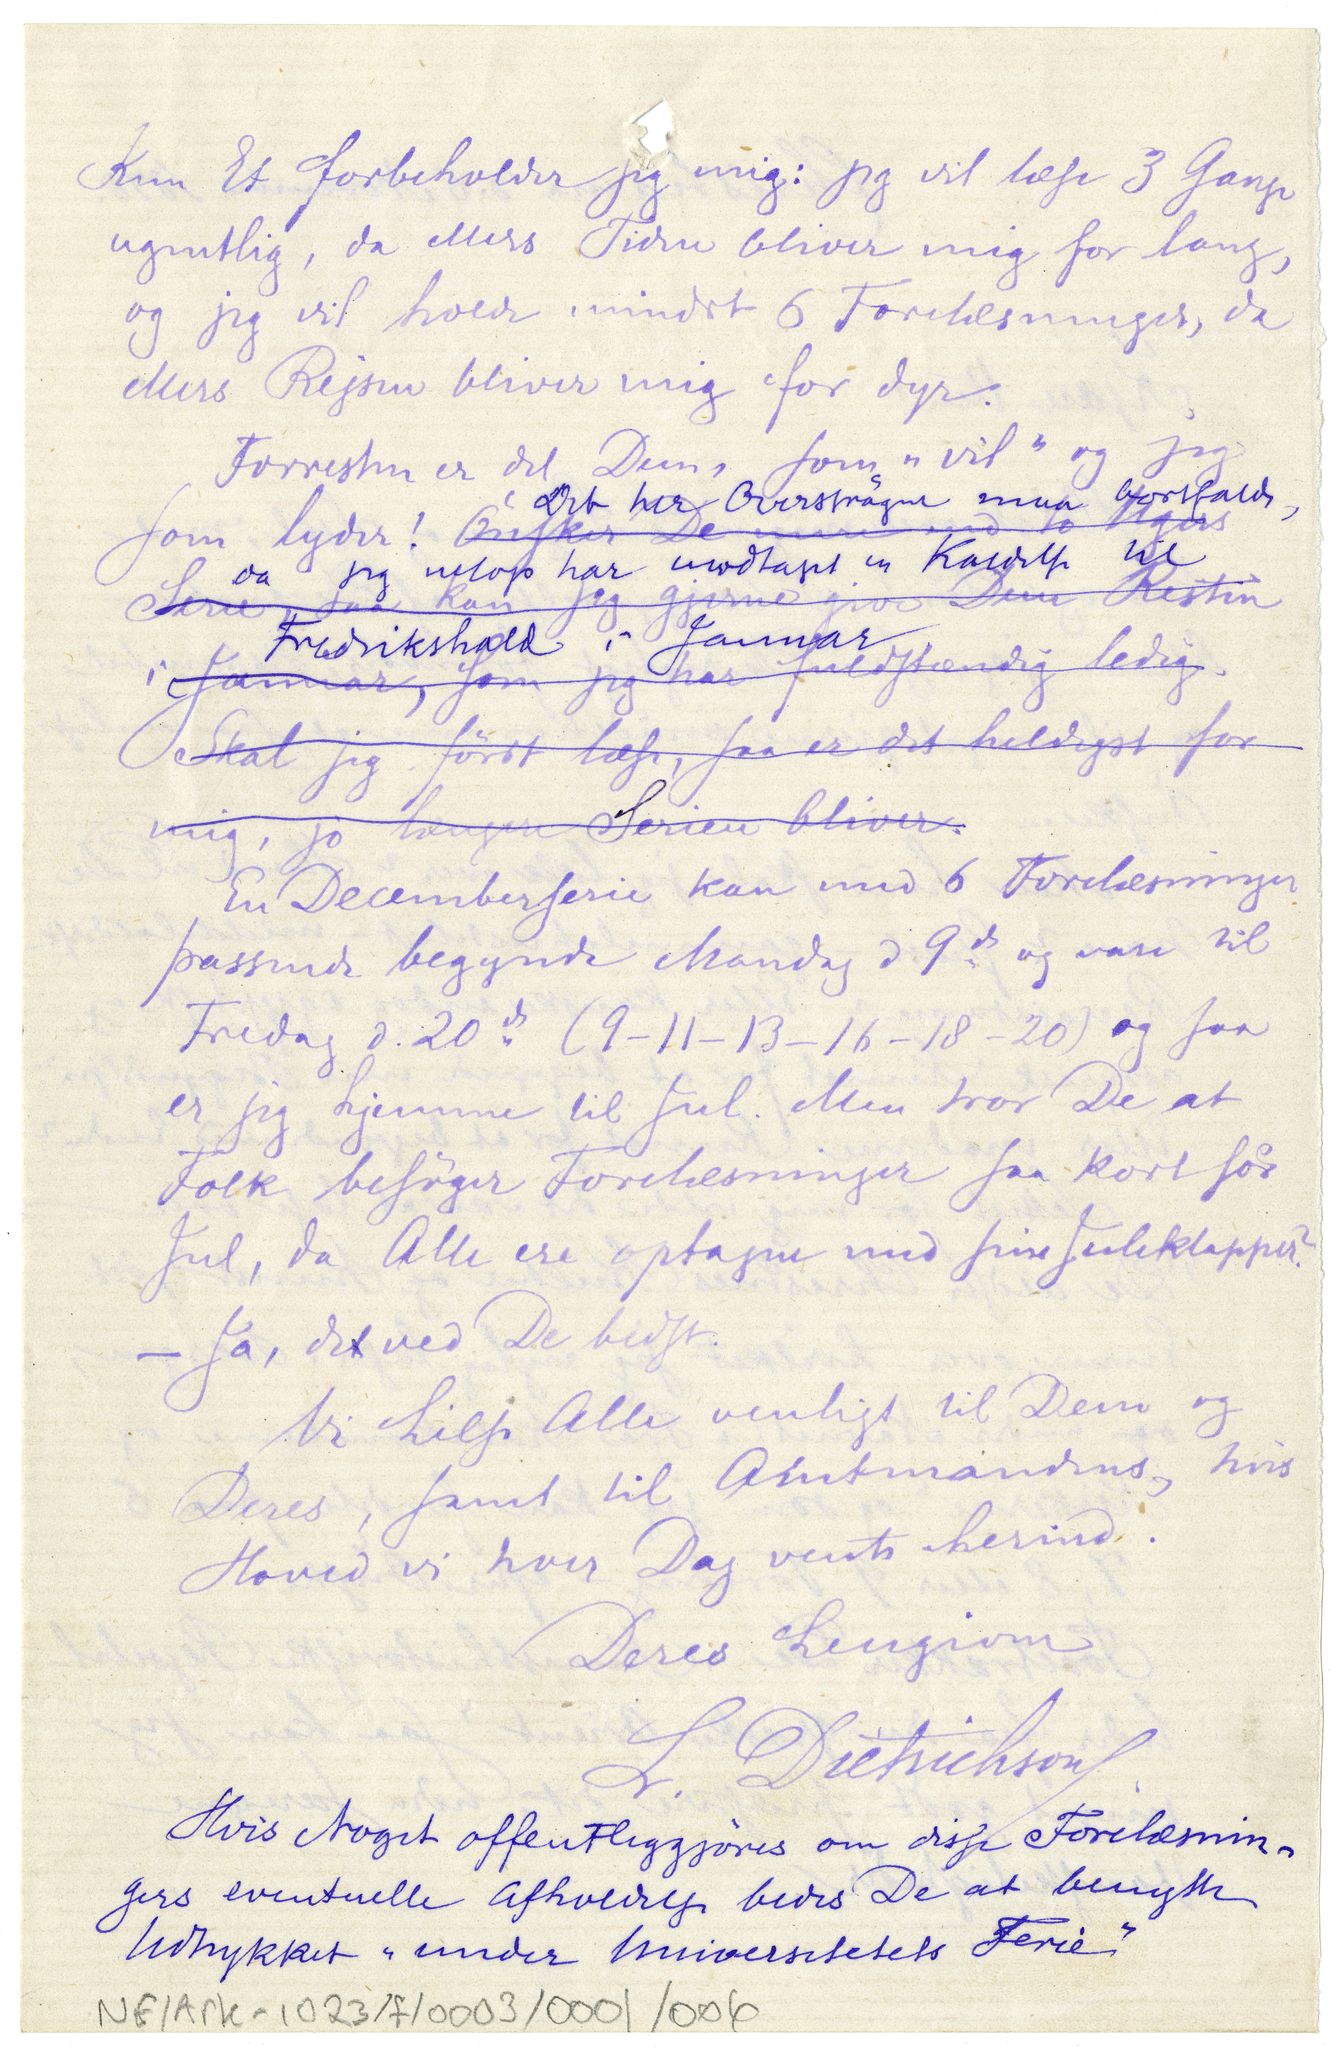 Kun Et forbeholder jeg mig: jeg vil læse 3 Gange
ugentlig, da ellers Tiden bliver mig for lang,
og jeg vil holde mindst 6 Forelæsninger, da
ellers Rejsen bliver mig for dyr.
Forresten er det Dem, som „vil" og jeg
Det her Overstrøgne maa bortfalde,
som lyder! Ønsker De mere end to Ugers
da jeg netop har modtaget en Kaldelse til
Serie, saa kan jeg gjerne give Dem Resten
Fredrikshald i Januar
i Januar, som jeg har fuldstændig ledig.
Skal jeg först læse, saa er det heldigst for
mig, jo længere Serien bliver.
En Decemberserie kan med 6 Forelæsninger
passende begynde Mandag d 9de og vare til
Fredag d. 20de (9-11-13-16-18-20) og saa
er jeg hjemme til Jul. Men tror De at
Folk besöger Forelæsninger saa kort för
Jul, da Alle ere optagne med sine Juleklapper?
— Ja, det ved De bedst.
Vi hilse Alle venligt til Dem og
Deres, samt til Amtmandens, hvis
Hoved vi hver Dag vente herind.
Deres hengivne
L. Dietrichson.
Hvis Noget offentliggjöres om disse Forelæsnin-
gers eventuelle Afholdelse bedes De at benytte
Udtrykket „under Universitetets Ferie"
NF/Ark-1023/F/0003/0001/006